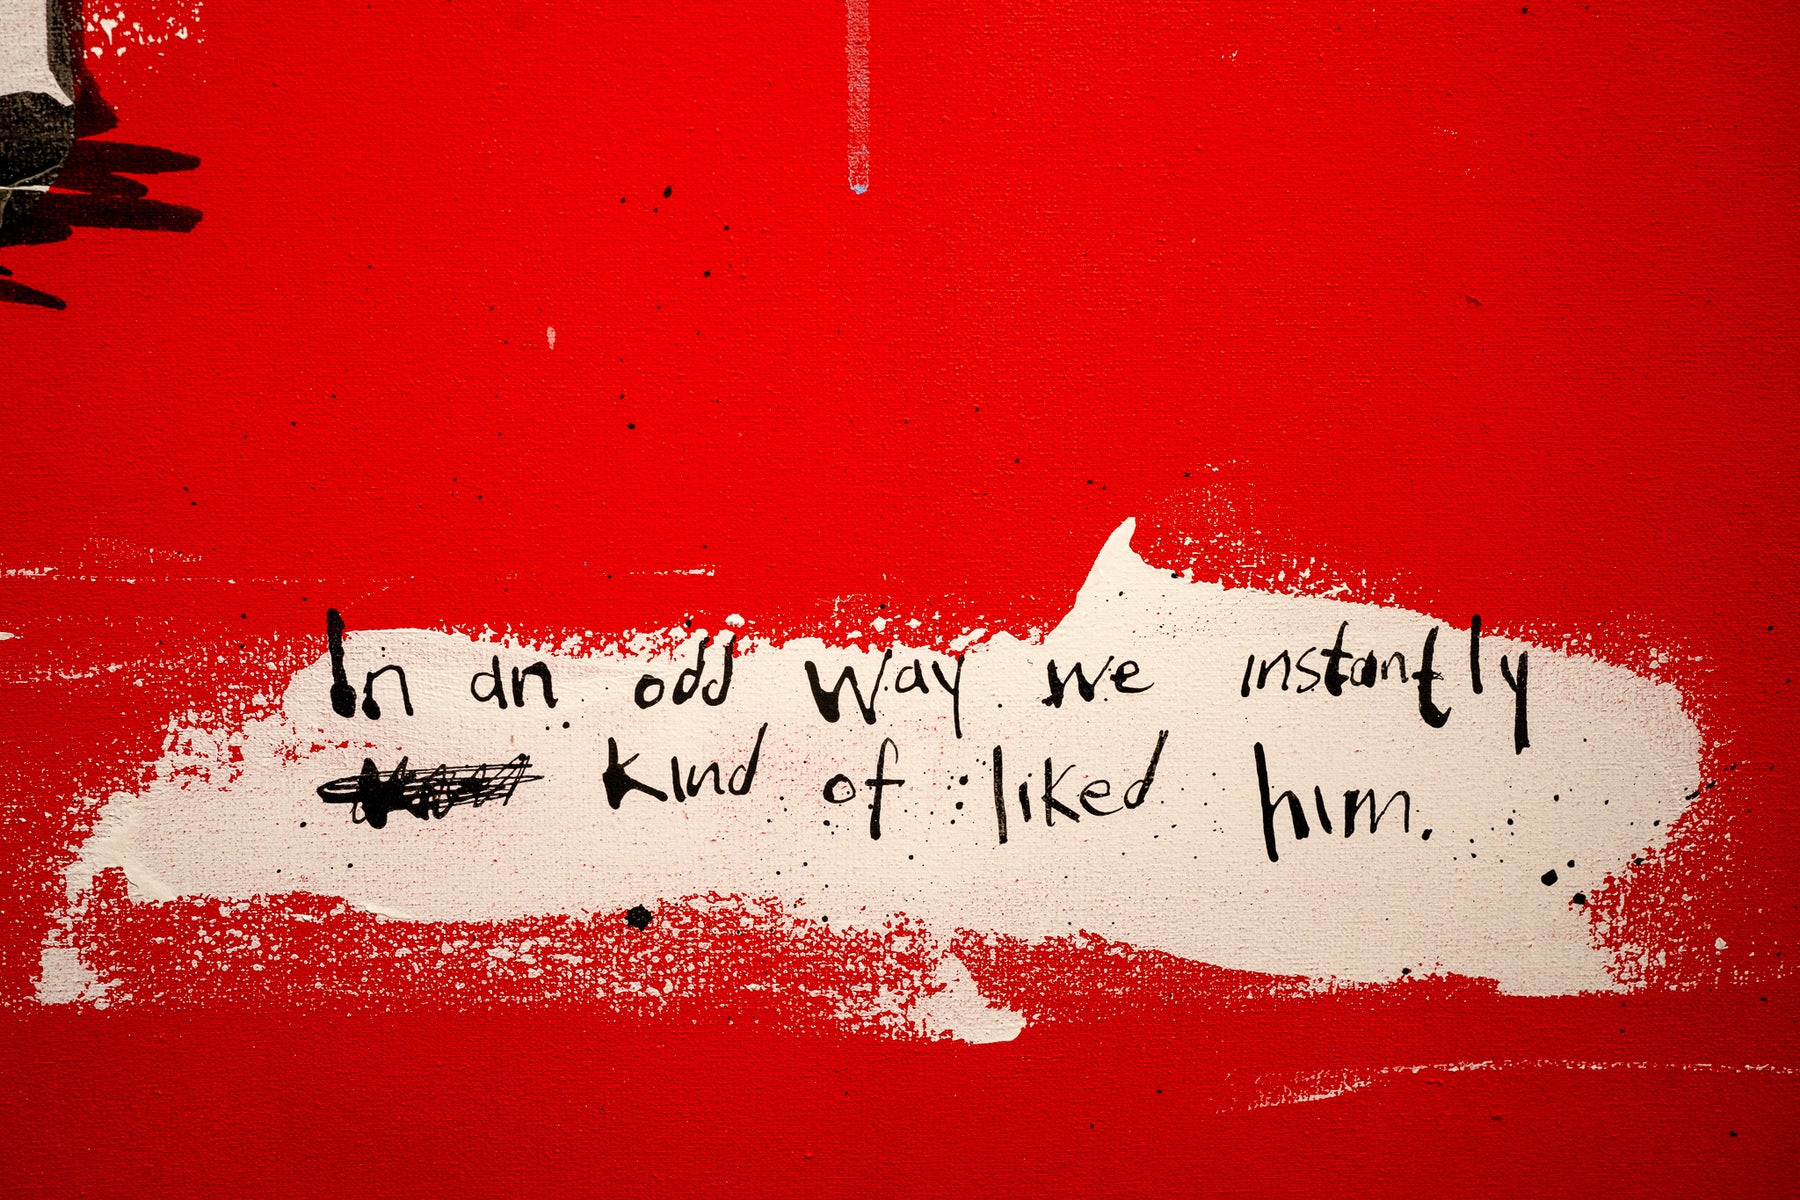 In an odd way we instantly
kind of liked him.